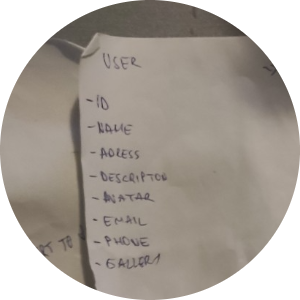 USER
- ID
- NAME
- ADRESS
- DESCRIPTOO
- AVATAR
- EMAIL
- PHONE
- GALLERY
RT TO